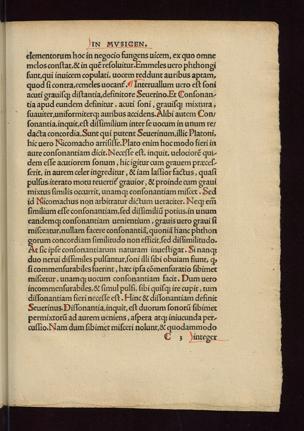 IN MVSICEN,
elementorum hoc in negocio fungens uicem, ex quo omne
melos constat, & in quē resoluitur. Emmeles uero phthongi
sunt, qui inuicem copulati, uocem reddunt auribus aptam,
quod si contra, ecmeles uocant. Interuallum uero est soni
acuti grauisq; distantia, definitore Seuerino. Et Consonan-
tia apud eundem definitur. acuti soni, grauisq; mixtura,
suauiter, uniformiterq; auribus accidens. Alibi autem Con
sonantia, inquit, est dissimilium inter se uocum in unum re-
dacta concordia. Sunt qui putent Seuerinum, illic Platoni,
hic uero Nicomacho arrisisse. Plato enim hoc modo fieri in
aure consonantiam dicit. Necesse est, inquit, uelociorē qui-
dem esse acutiorem sonum, hic igitur cum grauem præces-
serit, in aurem celer ingreditur, & iam lassior factus, quasi
pulsus, iterato motu reuertit grauior, & proinde cum graui
mixtus similis occurrit, unamq; consonantiam miscet. Sed
id Nicomachus non arbitratur dictum ueraciter. Neq; em
similium esse consonantiam, sed dissimiliū potius, in unum
eandemq; consonantiam uenientium, grauis uero graui si
misceatur, nullam facere consonantiā, quoniā hanc phthon
gorum concordiam similitudo non efficit, sed dissimilitudo.
At sic ipse consonantiarum naturam inuestigat. Si nanq;
duo nerui dissimiles pulsantur, soni illi sibi obuiam fiunt, q
si commensurabiles fuerint, hæc ipsa cōmensuratio sibimet
misetur, unamq; uocum consonantiam facit. Dum uero
incommensurabiles, & simul pulsi, sibi quisq; ire cupit, tum
dissonantiam fieri necesse est. Hinc & dissonantiam definit
Seuerinus. Dissonantia, inquit, est duorum sonorū sibimet
permixtorū ad aurem ueniens, aspera atq; iniucunda per-
cussio. Nam dum sibimet misceri nolunt, & quodammodo
C 3 integer